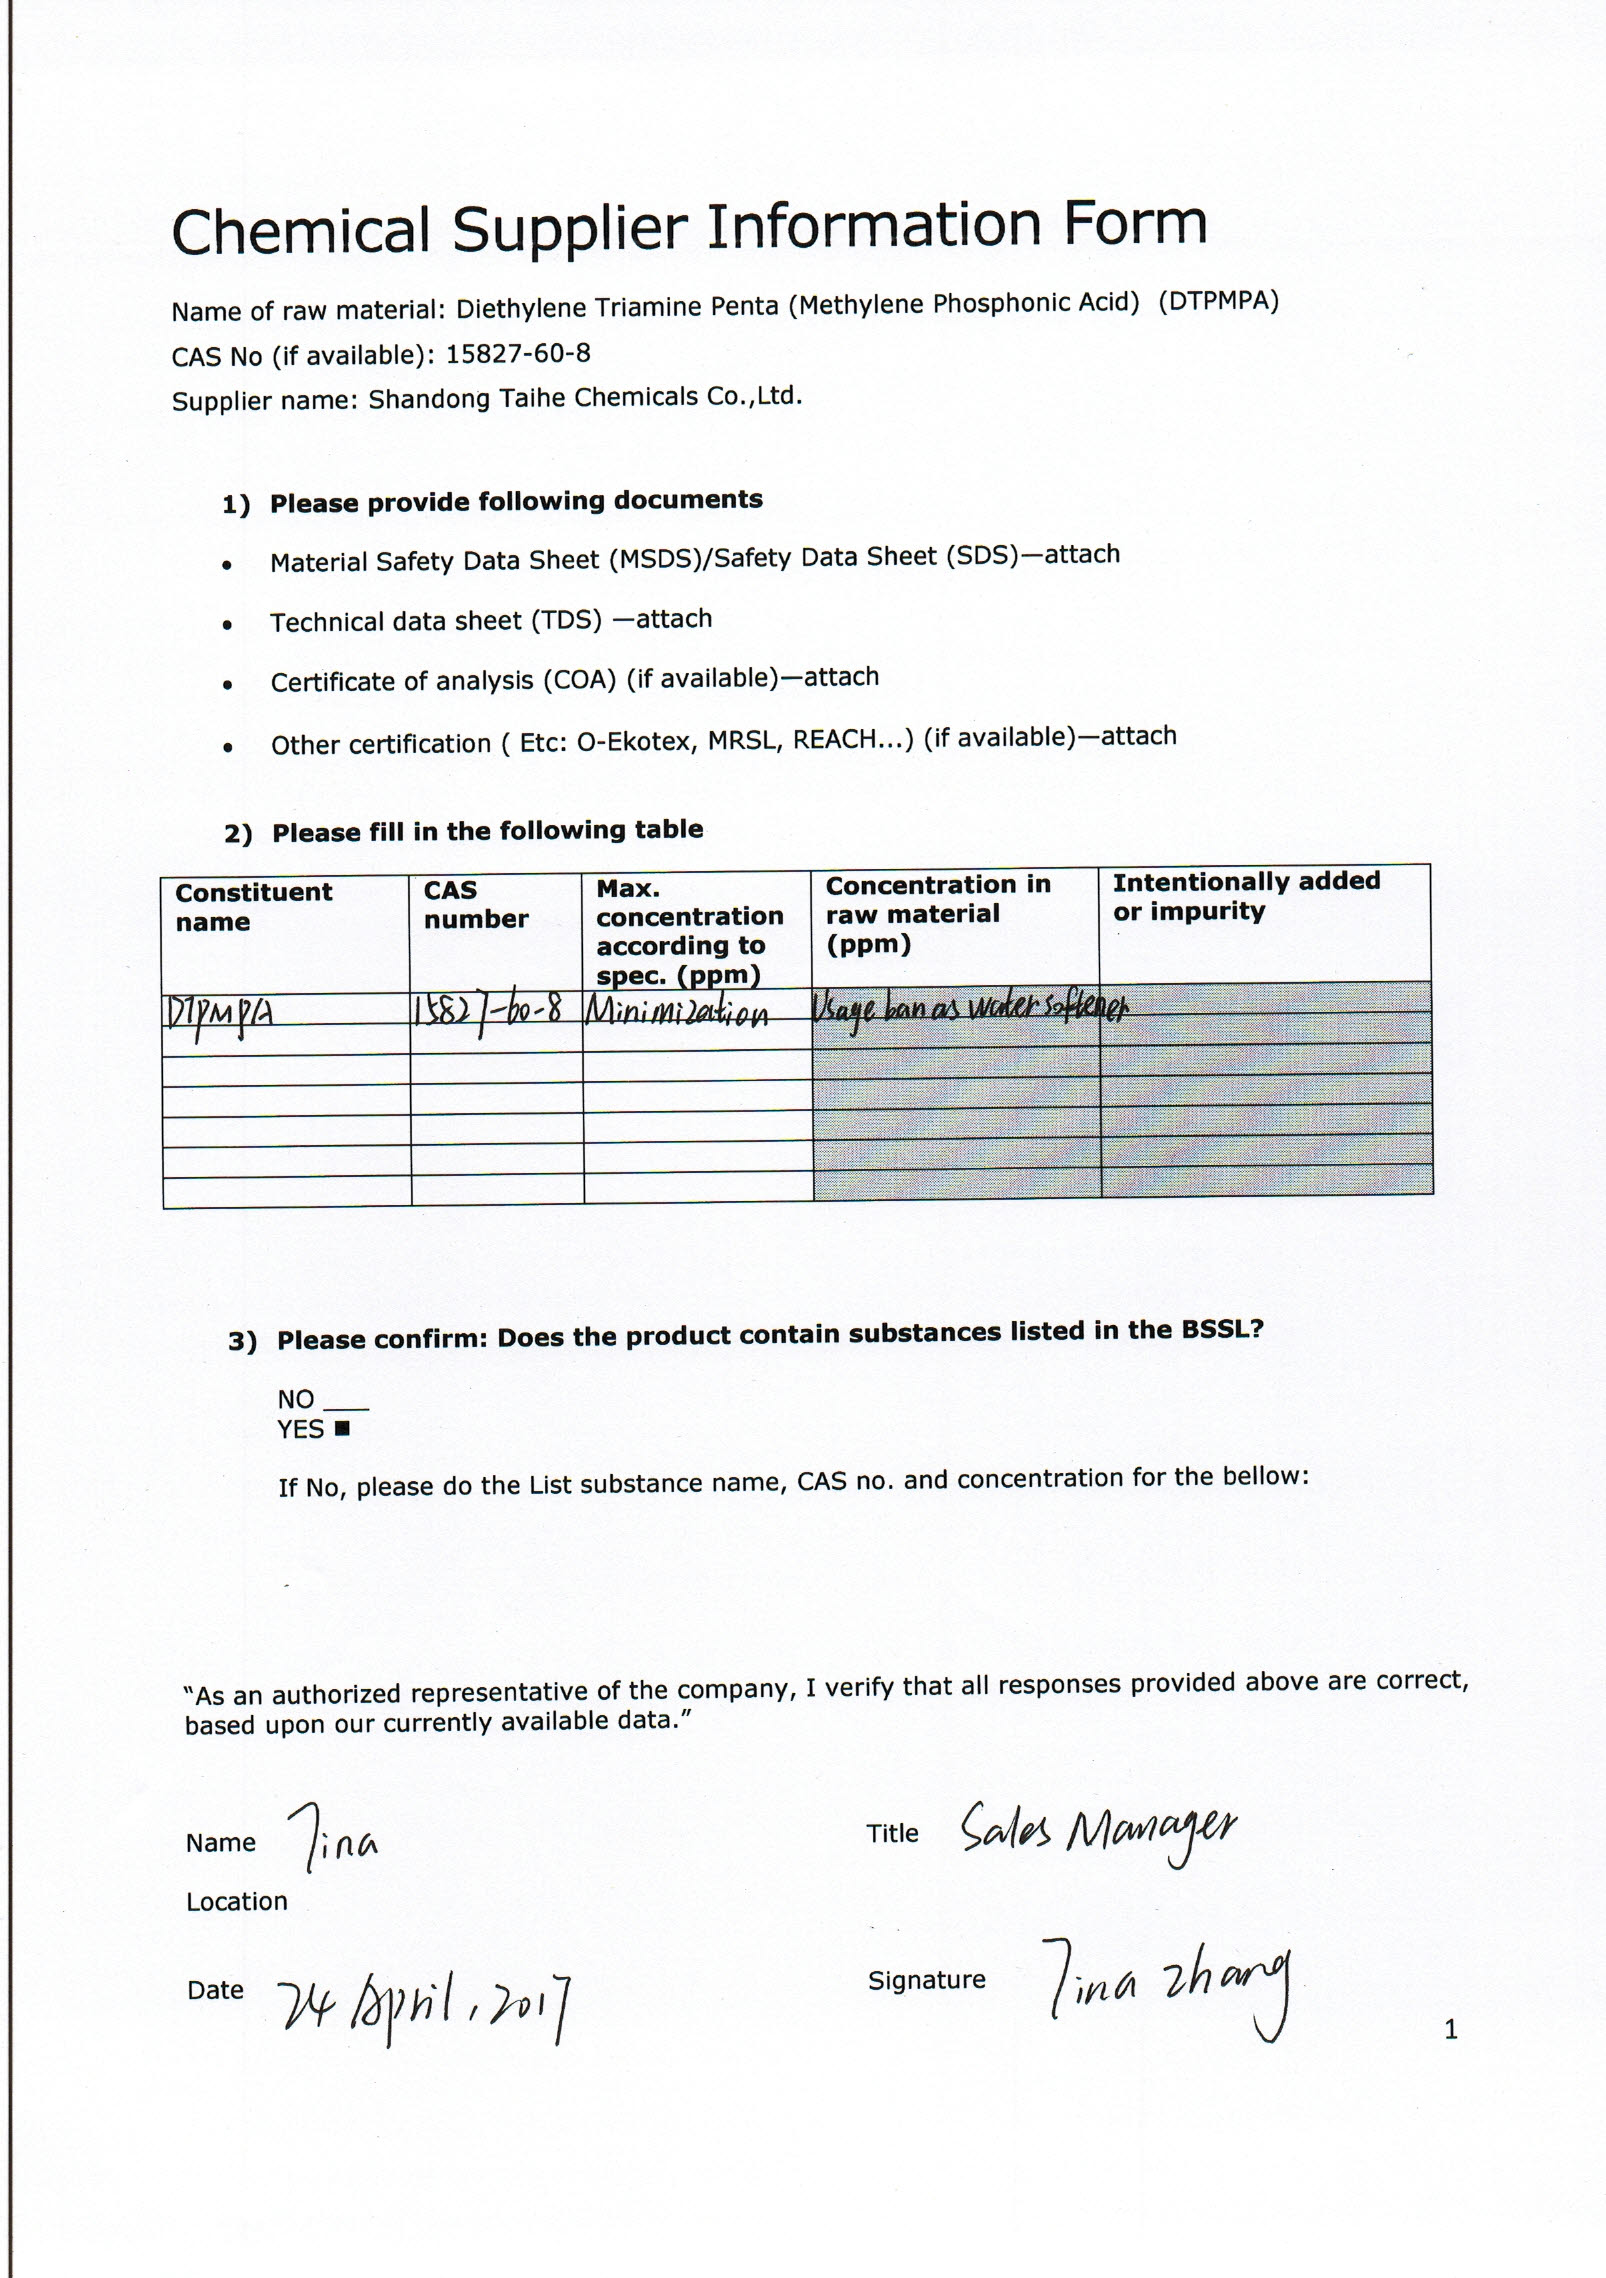 Chemical Supplier Information Form
Name of raw material: Diethylene Triamine Penta (Methylene Phosphonic Acid) (DTPMPA)
CAS No (if available): 15827-60-8
Supplier name: Shandong Taihe Chemicals Co.,Ltd.
1) Please provide following documents
• Material Safety Data Sheet (MSDS)/Safety Data Sheet (SDS)—attach
• Technical data sheet (TDS) —attach
• Certificate of analysis (COA) (if available)—attach
• Other certification ( Etc: O-Ekotex, MRSL, REACH...) (if available)—attach
2) Please fill in the following table
Constituent name
CAS number
Max. concentration according to spec. (ppm)
Concentration in raw material (ppm)
Intentionally added or impurity
DTPMPA 15827-60-8 Minimization Usage ban as water softener
3) Please confirm: Does the product contain substances listed in the BSSL?
NO ___
YES ■
If No, please do the List substance name, CAS no. and concentration for the bellow:
“As an authorized representative of the company, I verify that all responses provided above are correct,
based upon our currently available data.”
Name Tina Title Sales Manager
Location
Date 24 April, 2017 Signature Tina Zhang
1